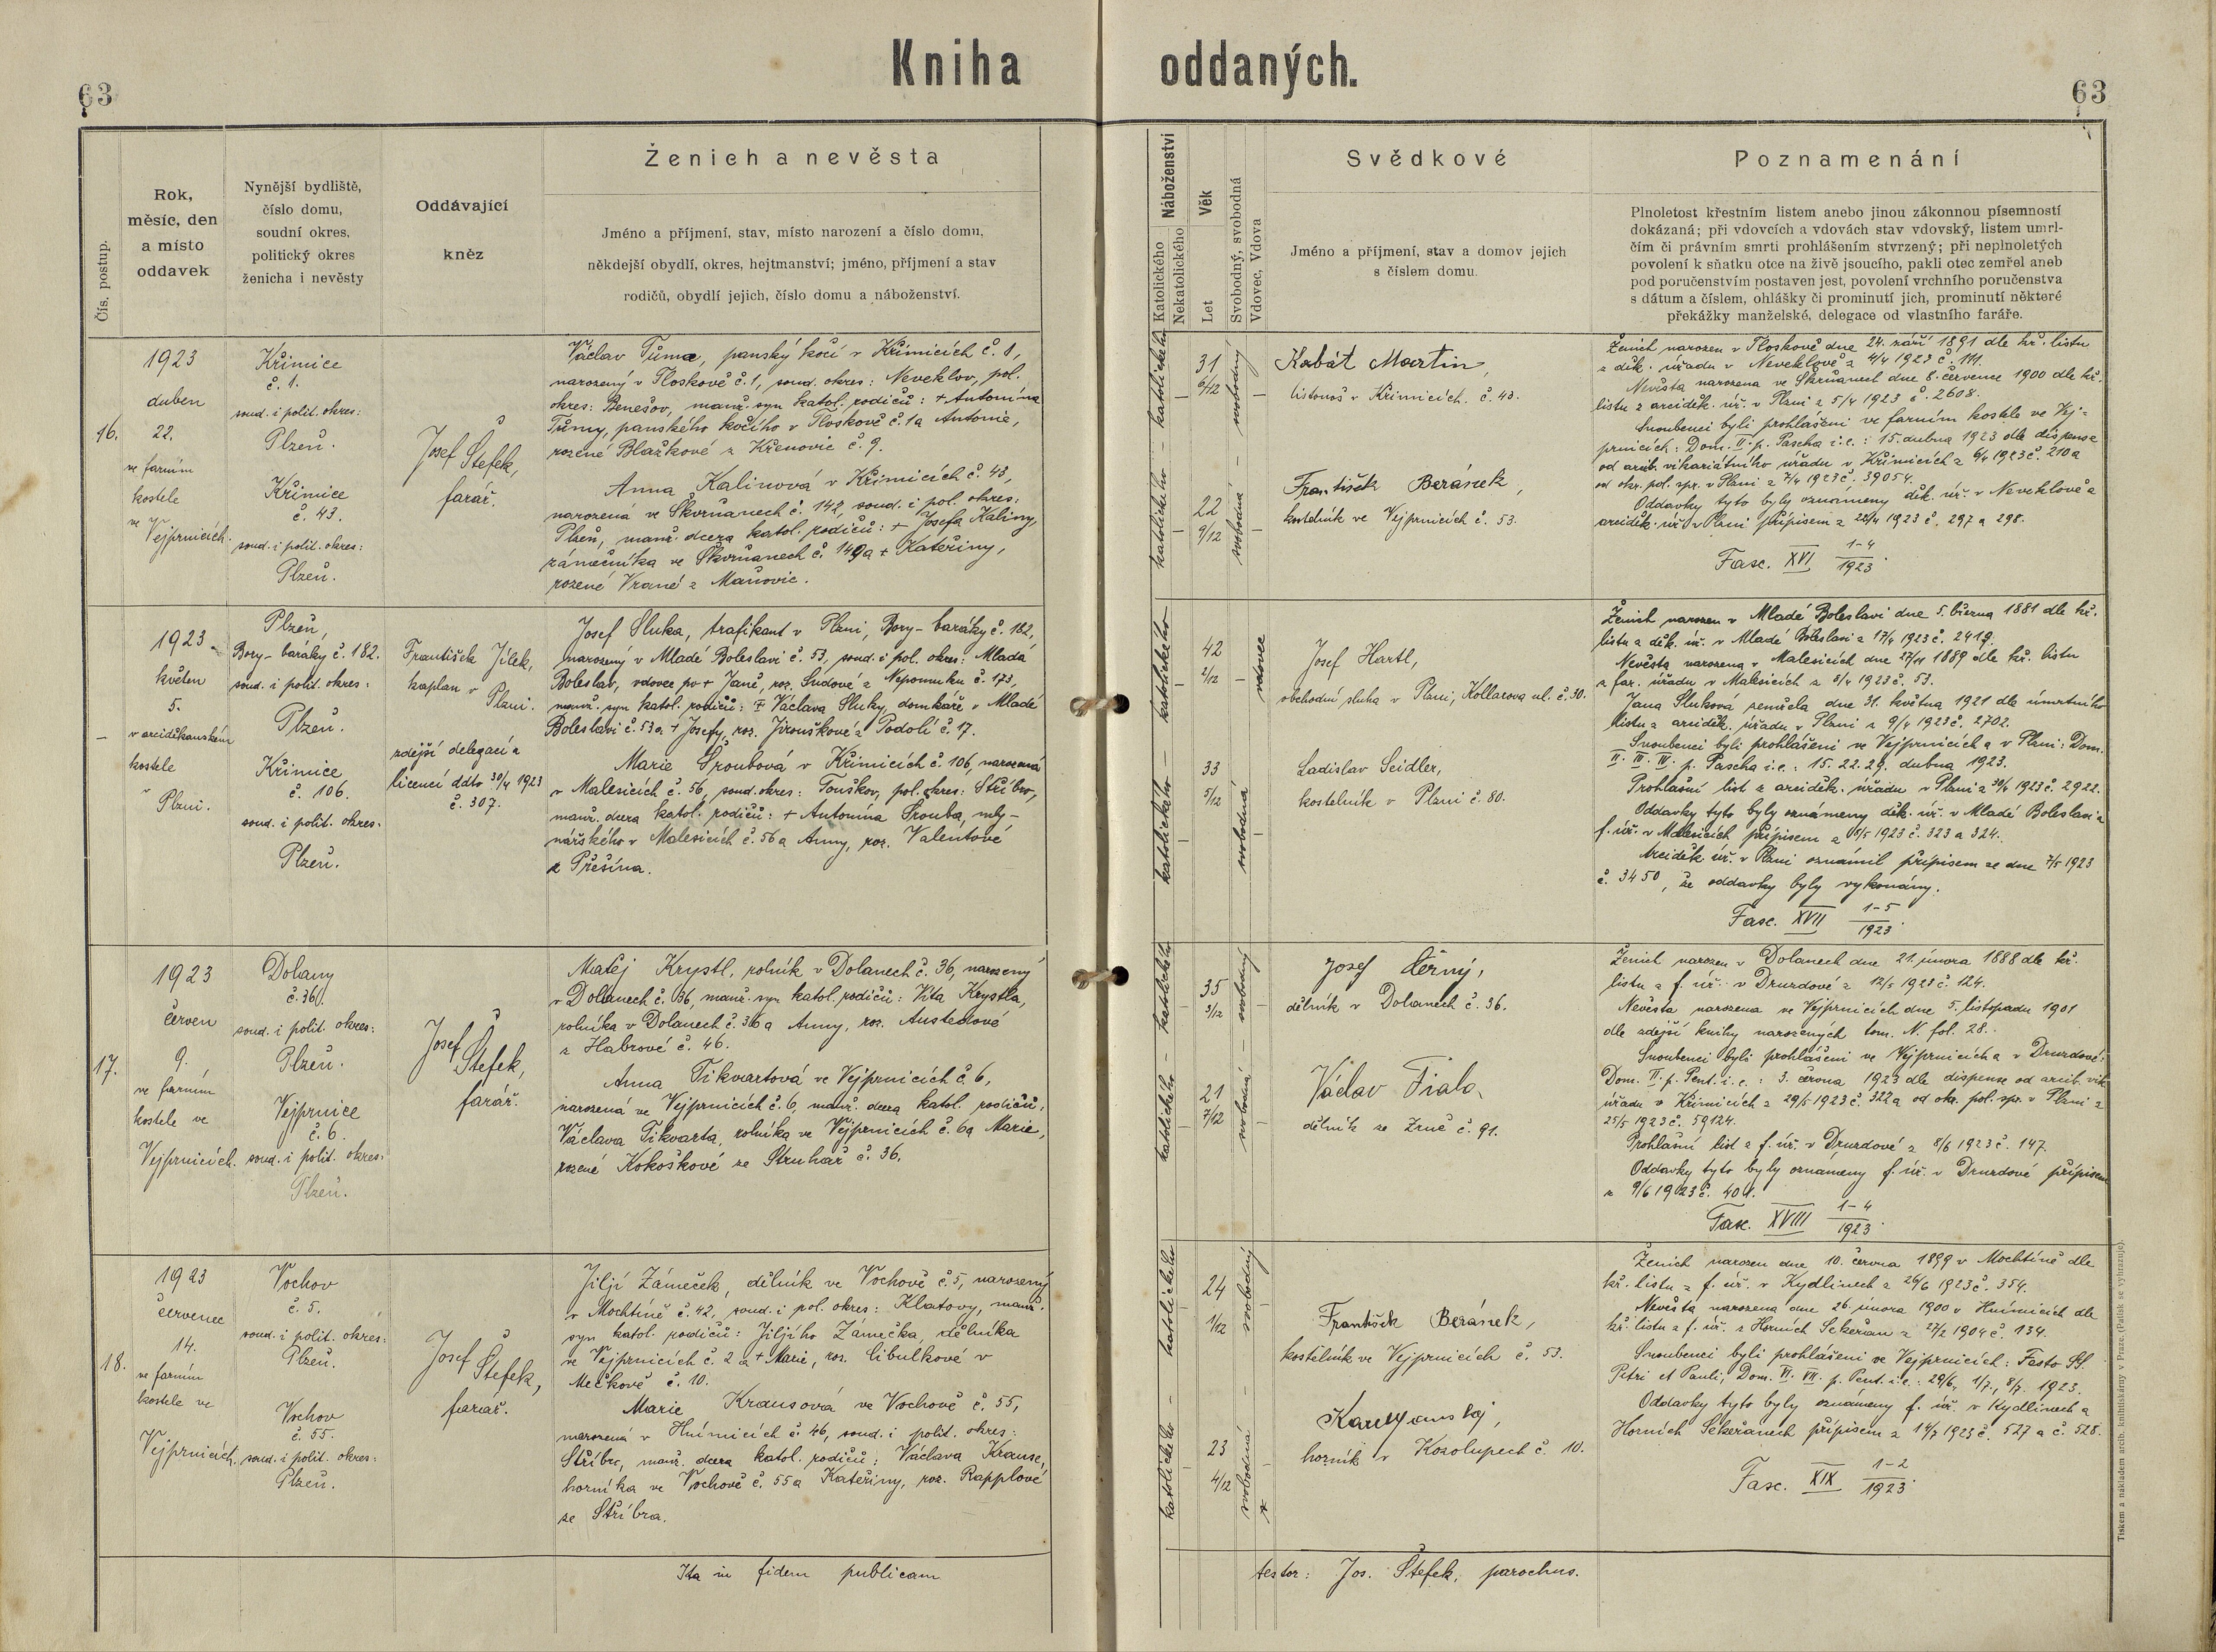 Kniha oddaných.
63
63
Čís. postup.
Rok,
měsíc, den
a místo
oddavek
Nynější bydliště,
číslo domu,
soudní okres,
politický okres
ženicha i nevěsty
Oddávající
kněz
Ženich a nevěsta
Jméno a příjmení, stav, místo narození a číslo domu,
někdejší obydlí, okres, hejtmanství; jméno, příjmení a stav
rodičů, obydlí jejich, číslo domu a náboženství.
Náboženství
Katolického
Nekatolického
Věk
Let
Svobodný, svobodná
Vdovec, Vdova
Svědkové
Jméno a příjmení, stav a domov jejich
s číslem domu.
Poznamenání
Plnoletost křestním listem anebo jinou zákonnou písemností
dokázaná; při vdovcích a vdovách stav vdovský, listem umrl-
čím či právním smrti prohlášením stvrzený; při neplnoletých
povolení k sňatku otce na živě jsoucího, pakli otec zemřel aneb
pod poručenstvím postaven jest, povolení vrchního poručenstva
s dátum a číslem, ohlášky či prominutí jich, prominutí některé
překážky manželské, delegace od vlastního faráře.
16.
1923
duben
22.
ve farním
kostele
ve Vejprnicích.
Křimice
č. 1.
soud. i polit. okres:
Plzeň.
Křimice
č. 43.
soud. i polit. okres:
Plzeň.
Josef Štefek,
farář.
Václav Tůma, panský kočí v Křimicích č. 1,
narozený v Tloskově č. 1, soud. okres: Neveklov, pol.
okres: Benešov, manž. syn katol. rodičů: + Antonína
Tůmy, panského kočího v Tloskově č. 1 a Antonie,
rozené Blažkové z Křenovic č. 9.
Anna Kalinová v Křimicích č. 43,
narozená ve Skvrňanech č. 142, soud. i pol. okres:
Plzeň, manž. dcera katol. rodičů: + Josefa Kaliny,
zámečníka ve Skvrňanech č. 149 a + Kateřiny,
rozené Vrané z Maňovic.
katolického – katolického
31
6/12
22
9/12
svobodný
svobodná
Kabát Martin,
listonoš v Křimicích č. 43.
František Beránek,
kostelník ve Vejprnicích č. 53.
Ženich narozen v Tloskově dne 24. září 1891 dle kř. listu
z děk. úřadu v Neveklově z 4/4 1923 č. 111.
Nevěsta narozena ve Skvrňanech dne 8. července 1900 dle kř.
listu z arciděk. úř. v Plzni z 5/4 1923 č. 2608.
Snoubenci byli prohlášeni ve farním kostele ve Vej-
prnicích: Dom. II. p. Pascha i.e.: 15. dubna 1923 dle dispense
od arcib. vikariátního úřadu v Křimicích z 6/4 1923 č. 210 a
od okr. pol. spr. v Plzni z 7/4 1923 č. 39054.
Oddavky tyto byly oznámeny děk. úř. v Neveklově a
arciděk. úř. v Plzni přípisem z 22/4 1923 č. 297 a 298.
Fasc. XVI 1-4/1923.
–
1923
květen
5.
v arciděkanském
kostele
v Plzni.
Plzeň,
Bory – baráky č. 182.
soud. i polit. okres:
Plzeň.
Křimice
č. 106.
soud. i polit. okres.
Plzeň.
František Jílek,
kaplan v Plzni.
zdejší delegací a
licencí ddto 30/4 1923
č. 307.
Josef Sluka, trafikant v Plzni, Bory – baráky č. 182,
narozený v Mladé Boleslavi č. 53, soud. i pol. okres: Mladá
Boleslav, vdovec po + Janě, roz. Sudové z Nepomuku č. 173,
manž. syn katol. rodičů: + Václava Sluky, domkáře v Mladé
Boleslavi č. 53 a + Josefy, roz. Jirouškové z Podolí č. 17.
Marie Šroubová v Křimicích č. 106, narozená
v Malesicích č. 56, soud. okres: Touškov, pol. okres: Stříbro,
manž. dcera katol. rodičů: + Antonína Šrouba, mly-
nářského v Malesicích č. 56 a Anny, roz. Valentové
z Přešína.
katolického – katolického
42
2/12
33
5/12
vdovec
svobodná
Josef Hartl,
obchodní sluha v Plzni, Kollarova ul. č. 30.
Ladislav Seidler,
kostelník v Plzni č. 80.
Ženich narozen v Mladé Boleslavi dne 5. března 1881 dle kř.
listu z děk. úř. v Mladé Boleslavi z 17/4 1923 č. 2419.
Nevěsta narozena v Malesicích dne 27/11 1889 dle kř. listu
z far. úřadu v Malesicích z 8/4 1923 č. 53.
Jana Sluková zemřela dne 31. května 1921 dle úmrtního
listu z arciděk. úřadu v Plzni z 9/4 1923 č. 2702.
Snoubenci byli prohlášeni ve Vejprnicích a v Plzni: Dom.
II. III. IV. p. Pascha i.e.: 15. 22. 29. dubna 1923.
Prohlašní list z arciděk. úřadu v Plzni z 30/4 1923 č. 2922.
Oddavky tyto byly oznámeny děk. úř. v Mladé Boleslavi a
f. úř. v Malesicích přípisem z 8/5 1923 č. 323 a 324.
Arciděk úř. v Plzni oznámil přípisem ze dne 7/5 1923
č. 3450, že oddavky byly vykonány.
Fasc. XVII 1-5/1923.
17.
1923
červen
9.
ve farním
kostele ve
Vejprnicích.
Dolany
č. 36.
soud. i polit. okres:
Plzeň.
Vejprnice
č. 6.
soud. i polit. okres:
Plzeň.
Josef Štefek,
farář.
Matěj Krystl, rolník v Dolanech č. 36, narozený
v Dolanech č. 36, manž. syn katol. rodičů: Víta Krystla,
rolníka v Dolanech č. 36 a Anny, roz. Austedové
z Habrové č. 46.
Anna Tikvartová ve Vejprnicích č. 6,
narozená ve Vejprnicích č. 6, manž. dcera katol. rodičů:
Václava Tikvarta, rolníka ve Vejprnicích č. 6 a Marie,
rozené Kokoškové ze Struhař č. 36.
katolického – katolického
35
3/12
21
7/12
svobodný
svobodná
Josef Černý,
dělník v Dolanech č. 36.
Václav Fiala,
dělník ze Zruč č. 91.
Ženich narozen v Dolanech dne 21. února 1888 dle kř.
listu z f. úř. v Druzdové z 12/5 1923 č. 124.
Nevěsta narozena ve Vejprnicích dne 5. listopadu 1901
dle zdejší knihy narozených tom. N. fol. 28.
Snoubenci byli prohlášeni ve Vejprnicích a v Druzdové:
Dom. II. p. Pent. i.e.: 3. června 1923 dle dispense od arcib. vik.
úřadu v Křimicích z 29/5 1923 č. 322 a od okr. pol. spr. v Plzni z
25/5 1923 č. 59124.
Prohlašní list z f. úř. v Druzdové z 8/6 1923 č. 147.
Oddavky tyto byly oznámeny f. úř. v Druzdové přípisem
z 9/6 1923 č. 401.
Fasc. XVIII 1-4/1923.
18.
1923
červenec
14.
ve farním
kostele ve
Vejprnicích.
Vochov
č. 5.
soud. i polit. okres:
Plzeň.
Vochov
č. 55.
soud. i polit. okres:
Plzeň.
Josef Štefek,
farář.
Jiljí Zámeček, dělník ve Vochově č. 5, narozený
v Mochtíně č. 42, soud. i pol. okres: Klatovy, manž.
syn katol. rodičů: Jiljího Zámečka, dělníka
ve Vejprnicích č. 2 a + Marie, roz. Cibulkové v
Mečkově č. 10.
Marie Krausová ve Vochově č. 55,
narozená v Hnímicích č. 46, soud. i polit. okres:
Stříbro, manž. dcera katol. rodičů: Václava Krause,
horníka ve Vochově č. 55 a Kateřiny, roz. Rapplové
ze Stříbra.
katolického – katolického
24
1/12
23
4/12
svobodný
svobodná
František Beránek,
kostelník ve Vejprnicích č. 53.
horník v Kozolupech č. 10.
Ženich narozen dne 10. června 1899 v Mochtíně dle
kř. listu z f. úř. v Kydlinech z 26/6 1923 č. 354.
Nevěsta narozena dne 26. února 1900 v Hnímicích dle
kř. listu z f. úř. z Horních Sekeřan z 27/2 1904 č. 134.
Snoubenci byli prohlášeni ve Vejprnicích: Festo St.
Petri et Pauli, Dom. VI. VII. p. Pent. i.e.: 29/6, 1/7., 8/7. 1923.
Oddavky tyto byly oznámeny f. úř. v Kydlinech a
Horních Sekeřanech přípisem z 14/7 1923 č. 527 a č. 528.
Fasc. XIX 1-2/1923.
Ita in fidem publicam
testor: Jos. Štefek, parochus.
Tiskem a nákladem arcib. knihtiskárny v Praze. (Patisk se vyhrazuje).